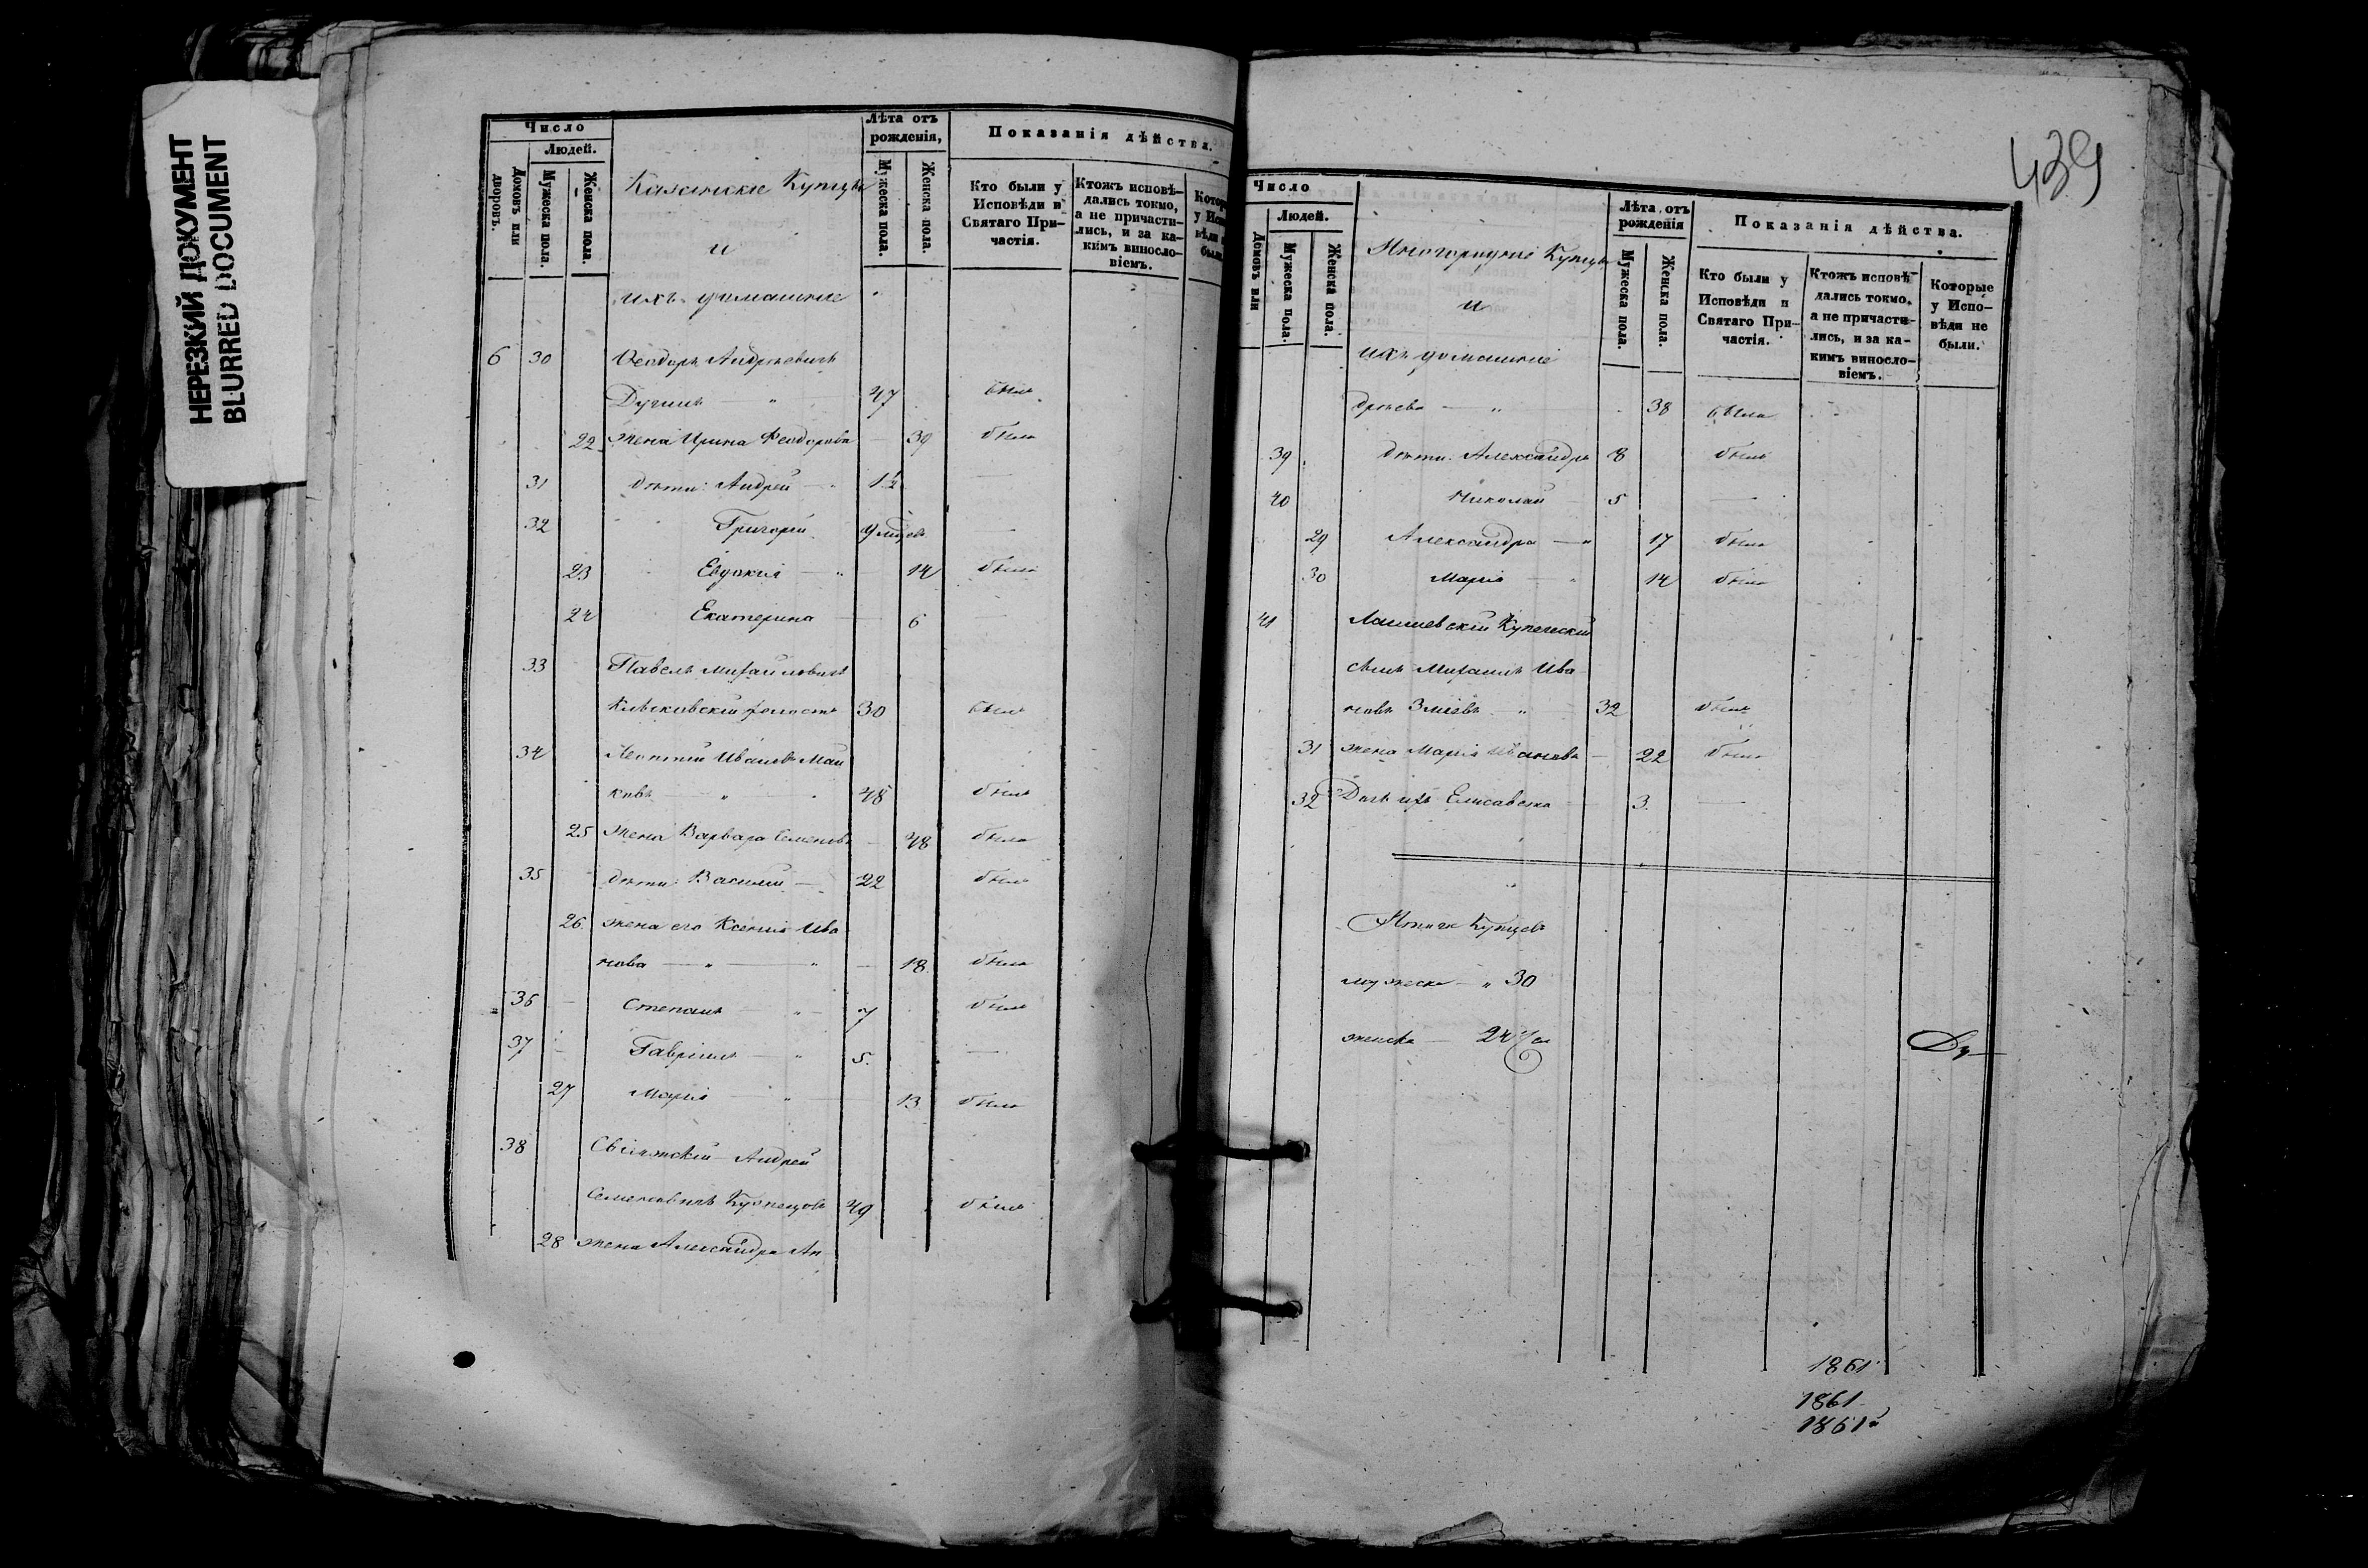 НЕРЕЗКИЙ ДОКУМЕНТ
BLURRED DOCUMENT
Число
Людей.
Домовъ или дворовъ.
Мужеска пола.
Женска пола.
Лѣта отъ рожденія,
Мужеска пола.
Женска пола.
Показанія дѣйства.
Кто были у Исповѣди и Святаго Причастія.
Ктожъ исповѣдались токмо, а не причастились, и за какимъ винословіемъ.
Казанские Купцы
и
ихъ домашние
6 30 Феодоръ Андреевичъ
47 былъ
22 жена Ирина Феодорова 39 была
31 дѣти: Андрей 1½ —
32 Григорій —
23 Евдокія 14 была
24 Екатерина 6 —
33 Павелъ Михайловичъ
холостъ 30 былъ
34 Леонтій Ивановъ Май
ковъ 48 былъ
25 жена Варвара Семенова 48 была
35 дѣти: Василій 22 былъ
26. жена его Ксенія Ива
нова 18 была
36 Степанъ 7 былъ
37 Гавріилъ 5. —
27 Марія 13 была
38 Свіяжскій Андрей
Семеновичъ Кузнецовъ 49 былъ
28 жена Александра Ан
439
Число
Людей.
Домовъ или
Мужеска пола.
Женска пола.
Лѣта отъ рожденія
Мужеска пола.
Женска пола.
Показанія дѣйства.
Кто были у Исповѣди и Святаго Причастія.
Ктожъ исповѣдались токмо, а не причастились, и за какимъ винословіемъ.
Которые у Исповѣди не были.
Иногородние Купцы
и
ихъ домашніе
дреева 38 была
39 дѣти: Александръ 8 былъ
40 Николай 5 —
29 Александра 17 была
30 Марія 14 была
41 Лаишевскій Купеческій
сынъ Михаилъ Ива
новъ Зміевъ 32 былъ
31 жена Марія Иванова 22 была
32 Дочь ихъ Елисавета 3. —
Итого Купцовъ
мужеска — 30
женска — 24
1861
1861
1861